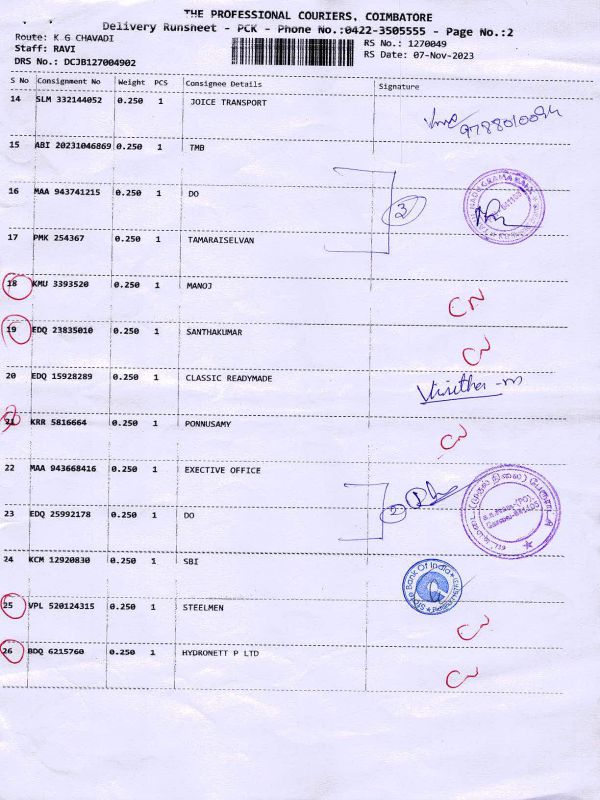 THE PROFESSIONAL COURIERS, COIMBATORE
Delivery Runsheet - PCK - Phone No.:0422-3505555 - Page No.:2
Route: K G CHAVADI
RS No.: 1270049
Staff: RAVI
RS Date: 07-Nov-2023
DRS No.: DCJB127004902
S No Consignment No Weight PCS Consignee Details Signature
14 SLM 332144052 0.250 1 JOICE TRANSPORT
9788010094
15 ABI 20231046869 0.250 1 TMB
16 MAA 943741215 0.250 1 DO
3
17 PMK 254367 0.250 1 TAMARAISELVAN
18 KMU 3393520 0.250 1 MANOJ
CN
19 EDQ 23835010 0.250 1 SANTHAKUMAR
CN
20 EDQ 15928289 0.250 1 CLASSIC READYMADE
21 KRR 5816664 0.250 1 PONNUSAMY
CN
22 MAA 943668416 0.250 1 EXECTIVE OFFICE
23 EDQ 25992178 0.250 1 DO
2
24 KCM 12920830 0.250 1 SBI
State Bank Of India
25 VPL 520124315 0.250 1 STEELMEN
CN
26 BDQ 6215760 0.250 1 HYDRONETT P LTD
CN